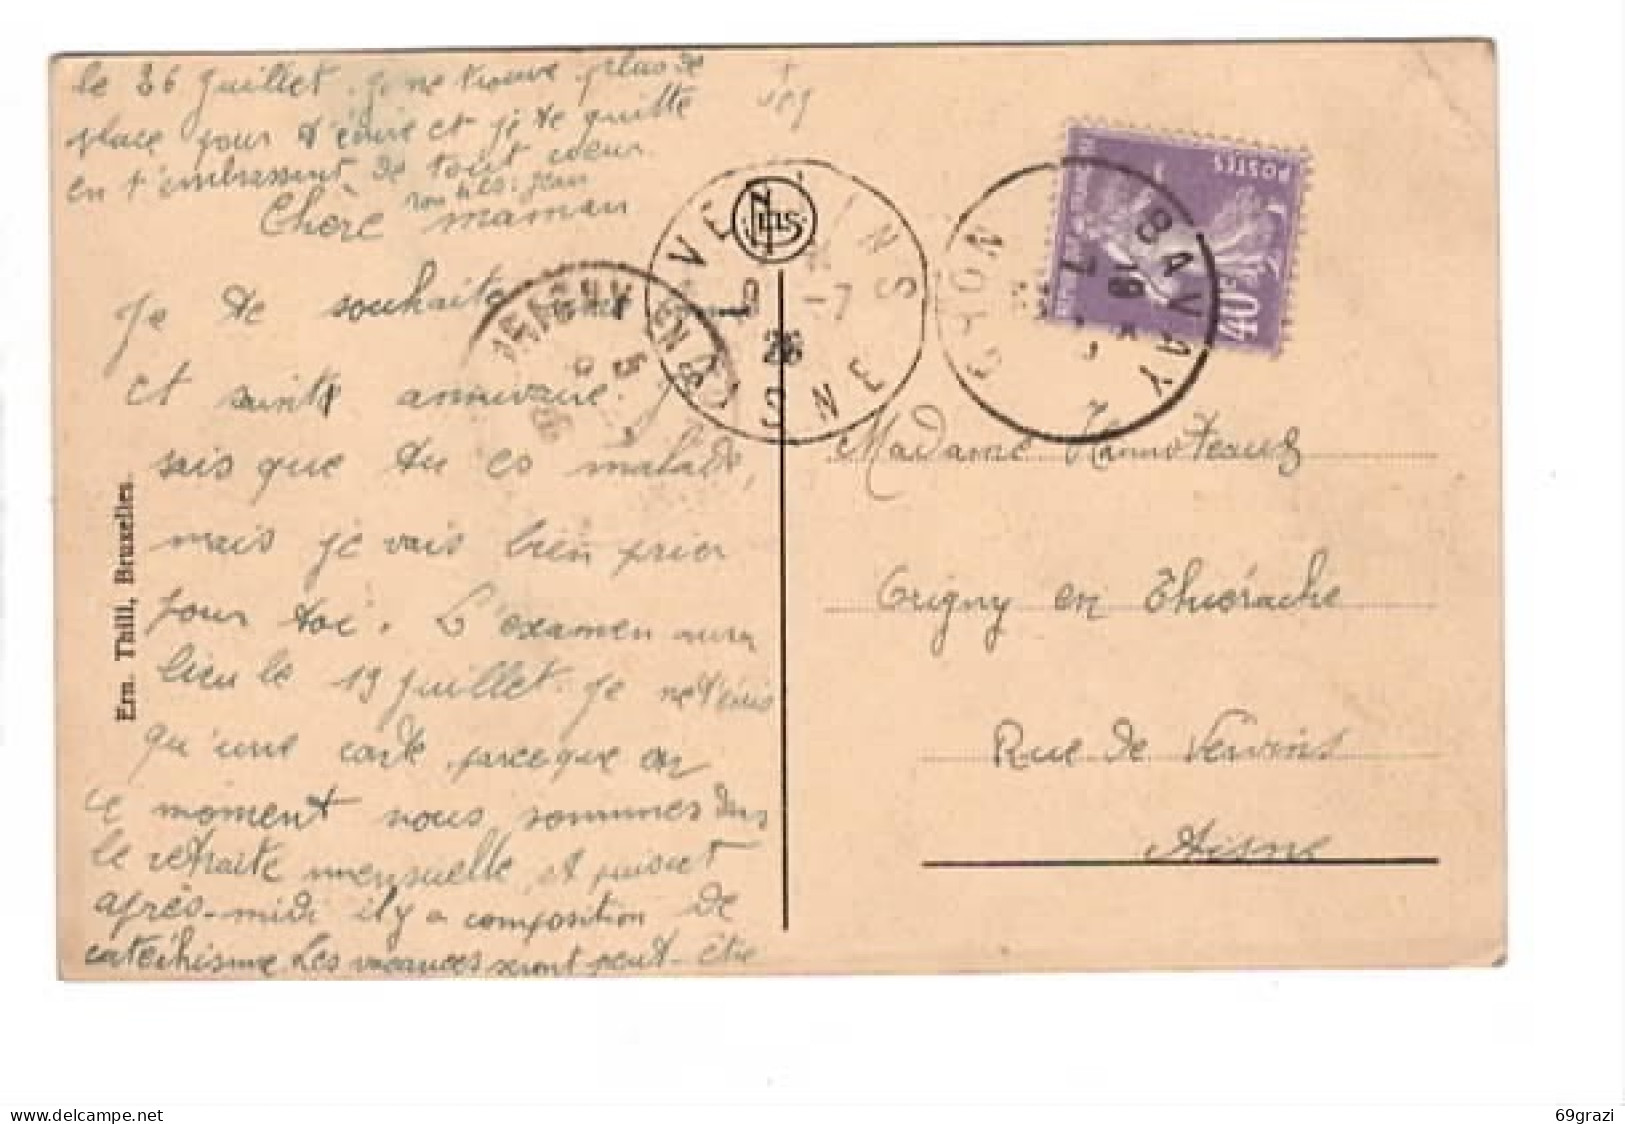 le 26 juillet. je ne trouve plus de
place pour t'écrire et je te quitte
en t'embrassant de tout coeur.
Jean
Chère maman
Je te souhaite une
et sainte
sais que tu es malade,
mais je vais bien prier
pour toi. L'examen aura
lieu le 19 juillet. Je ne t'écris
qu'une carte parce que en
ce moment nous sommes dans
le retraite mensuelle, et puis cet
après-midi il y a composition de
catéchisme. Les vacances seront peut-être
Ern. Thill, Bruxelles.
NELS
VERVINS
-7
26
AISNE
ORIGNY EN
BAVAY
NORD
19
7
POSTES
40
Madame Hannoteaux
Origny en Thiérache
Rue de Vervins
Aisne
www.delcampe.net
69grazi